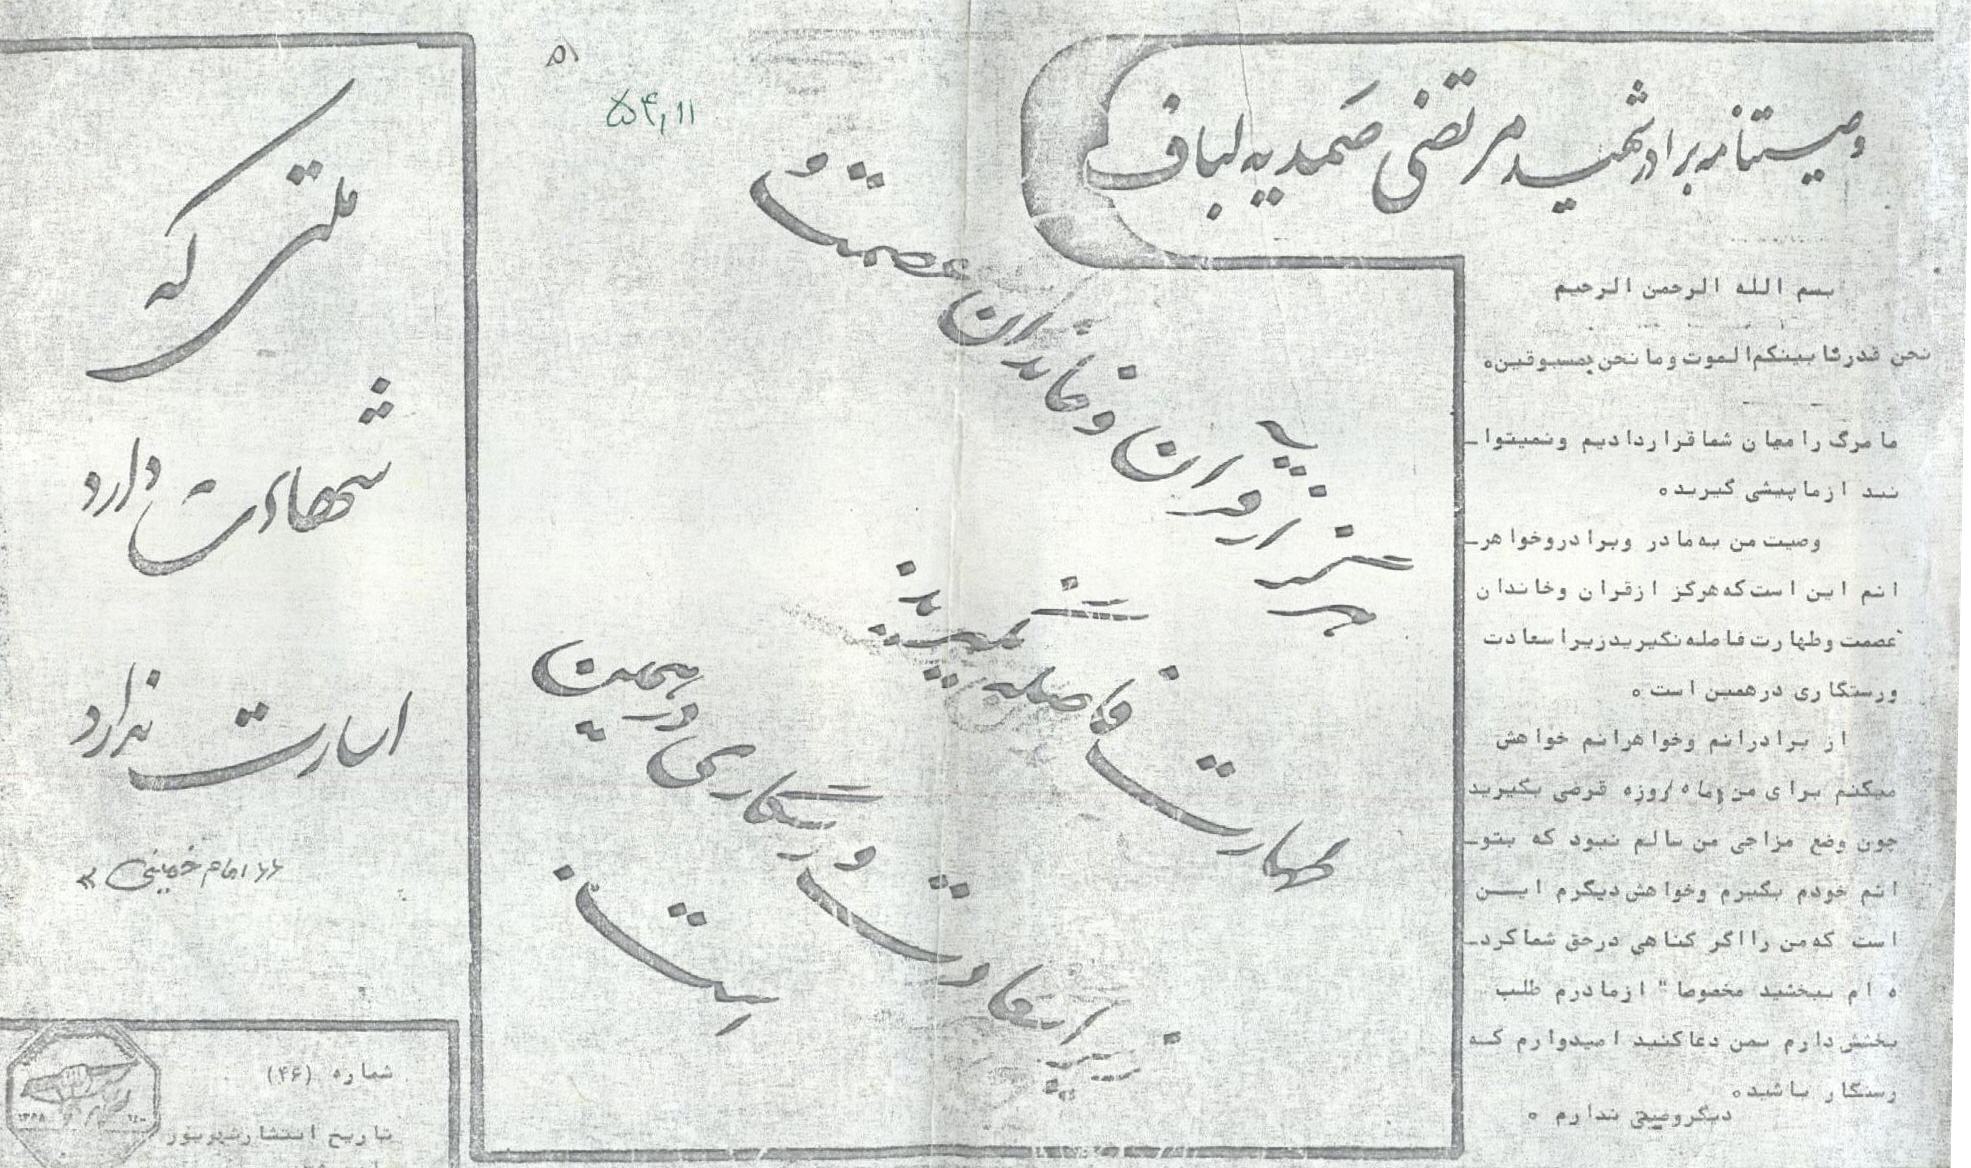 وصیتنامه برادر شهید مرتضی صمدیه لباف
بسم الله الرحمن الرحیم
نحن قدرنا بینکم الموت وما نحن بمسبوقین۰
ما مرگ را میان شما قرار دادیم ونمیتوا ـ
نید ازما پیشی گیرید۰
وصیت من به مادر وبرادر وخواهر ـ
انم این است که هرگز ازقران وخاندان
عصمت وطهارت فاصله نگیرید زیرا سعادت
ورستگاری درهمین است۰
از برادرانم وخواهرانم خواهش
میکنم برای من ماه روزه قرض بگیرید
چون وضع مزاجی من سالم نبود که بتو ـ
انم خودم بگیرم وخواهش دیگرم ایــن
است که من را اگر گناهی درحق شما کرد ـ
ه ام ببخشید مخصوصا" ازمادرم طلب
بخشش دارم بمن دعا کنید امیدوارم کـه
رستگار باشید۰
دیگر وصیتی ندارم ۰
۵۱
۵۴٫۱۱
هرگز از قرآن و خاندان عصمت و
طهارت فاصله نگیرید
زیرا سعادت و رستگاری در همین
است
ملتی که
شهادت دارد
اسارت ندارد
" امام خمینی "
شماره (۴۶)
تاریخ انتشار شهریور